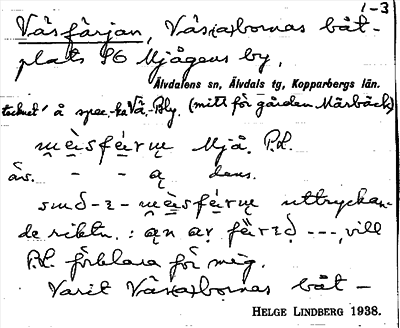 1-3
Väsfärjan, Väs(a)bornas båt-
plats SO Mjågens by,
Älvdalens sn, Älvdals tg, Kopparbergs län.
tecknet å spec.-ka Vä.-Bly. (mitt för gården Märbäck)
Mjå. P.L.
äv. - - ą dens.
uttryckan-
de riktn. : ---, vill
P.L. förklara för mig.
Varit Väs(a)bornas båt-
HELGE LINDBERG 1938.